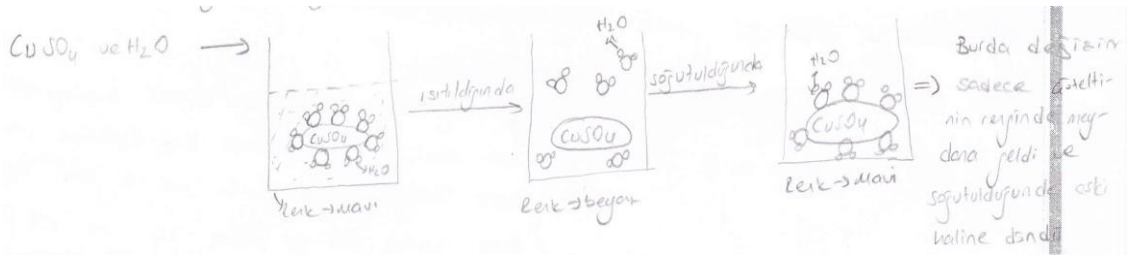 CuSO4 ve H2O
H2O
CuSO4
Renk → Mavi
ısıtıldığında
H2O
CuSO4
Renk → beyaz
soğutulduğunda
H2O
CuSO4
Renk → Mavi
=)
Burda değişim
sadece çözelti-
nin renginde mey-
dana geldi ve
soğutulduğunda eski
haline döndü